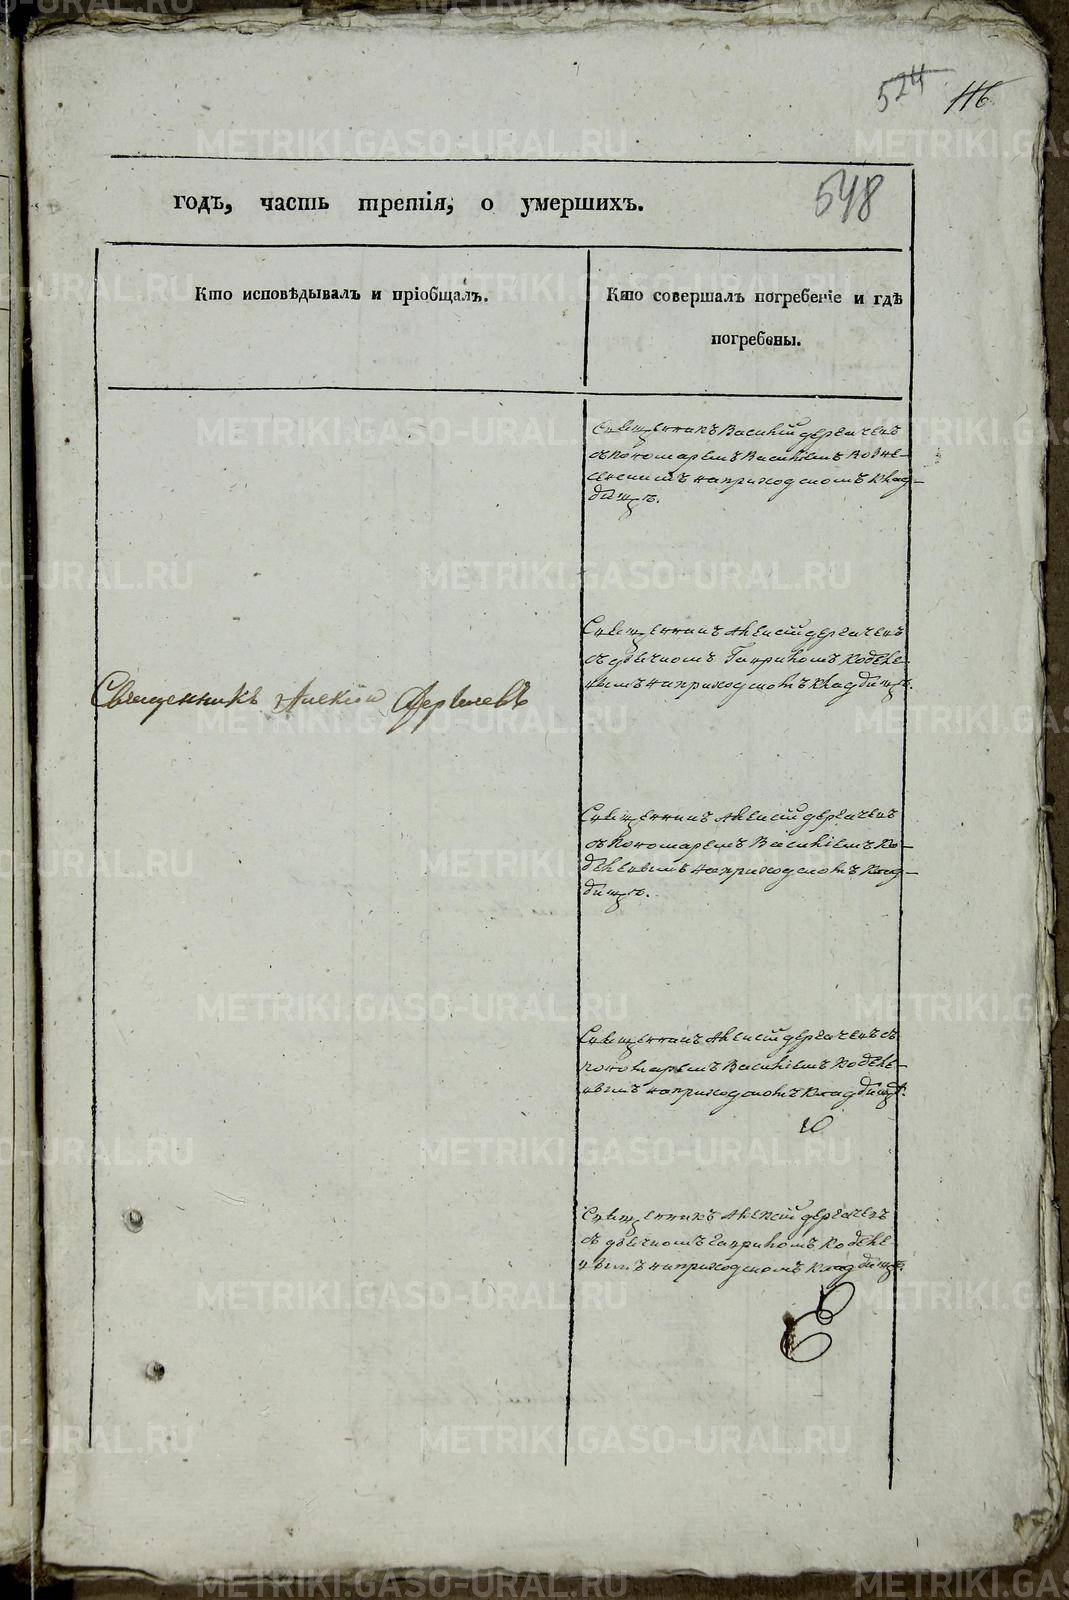 524 116
годъ, часть третія, о умершихъ. 548
Кто исповѣдывалъ и пріобщалъ.
Кто совершалъ погребеніе и гдѣ
погребены.
Священникъ Василій Дергачевъ
съ пономаремъ Василіемъ Возне-
сенскимъ на приходскомъ клад-
бищѣ.
Священникъ Алексій Дергачевъ
съ дьячкомъ Гавриломъ Кобеле-
вымъ на приходскомъ кладбищѣ.
Священникъ Алексій Дергачевъ
Священникъ Алексій Дергачевъ
съ пономаремъ Василіемъ Ко-
белевымъ на приходскомъ клад-
бищѣ.
Священникъ Алексій Дергачевъ съ
пономаремъ Василіемъ Кобеле-
вымъ на приходскомъ кладбищѣ.
Священникъ Алексій Дергачевъ
съ дьячкомъ Гавриломъ Кобеле-
вымъ на приходскомъ кладбищѣ.
METRIKI.GASO-URAL.RU